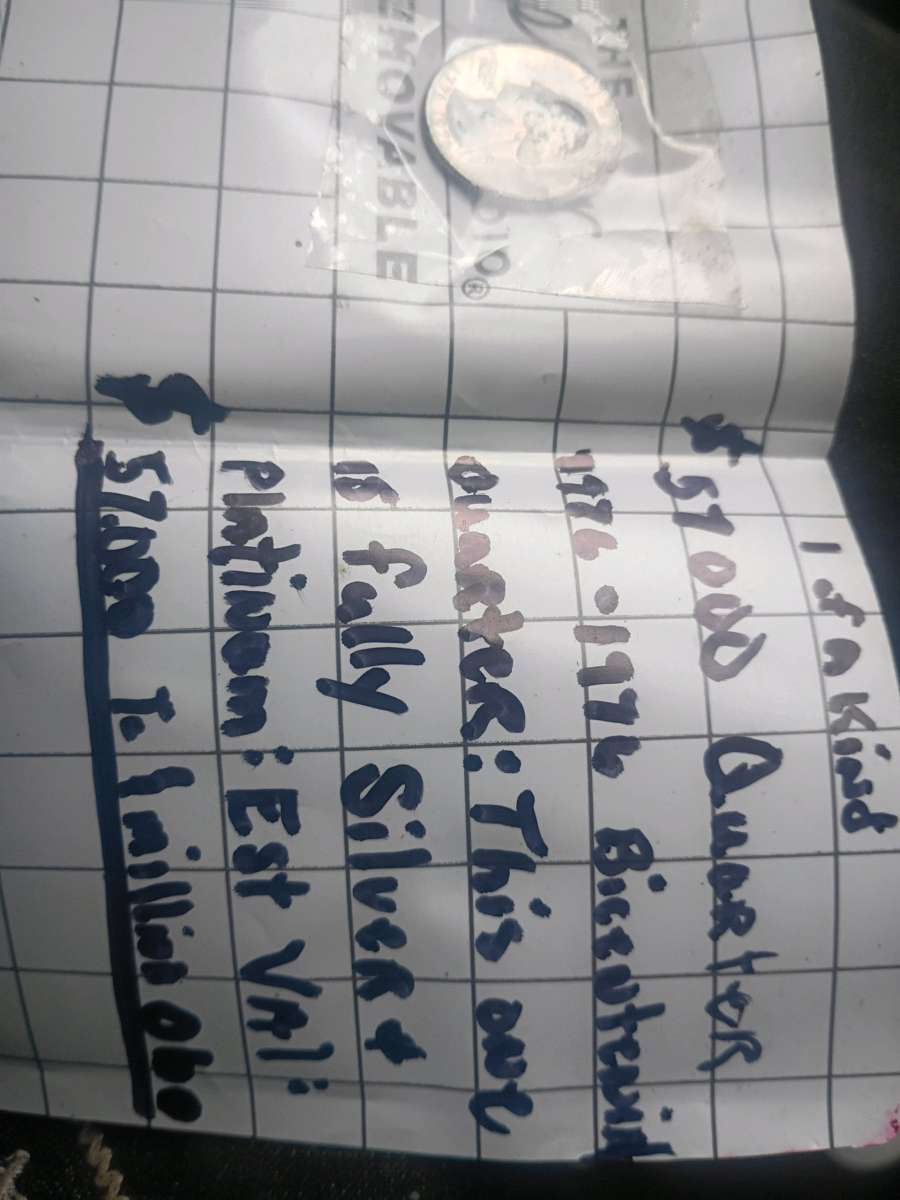 THE
DIO®
REMOVABLE
1 of A Kind
$ 57000 QuaRteR
1776.1976 Bicentenial
QuaRteR: This one
is fully Silver &
platinam: Est Val:
$ 57.000 To 1 million obo